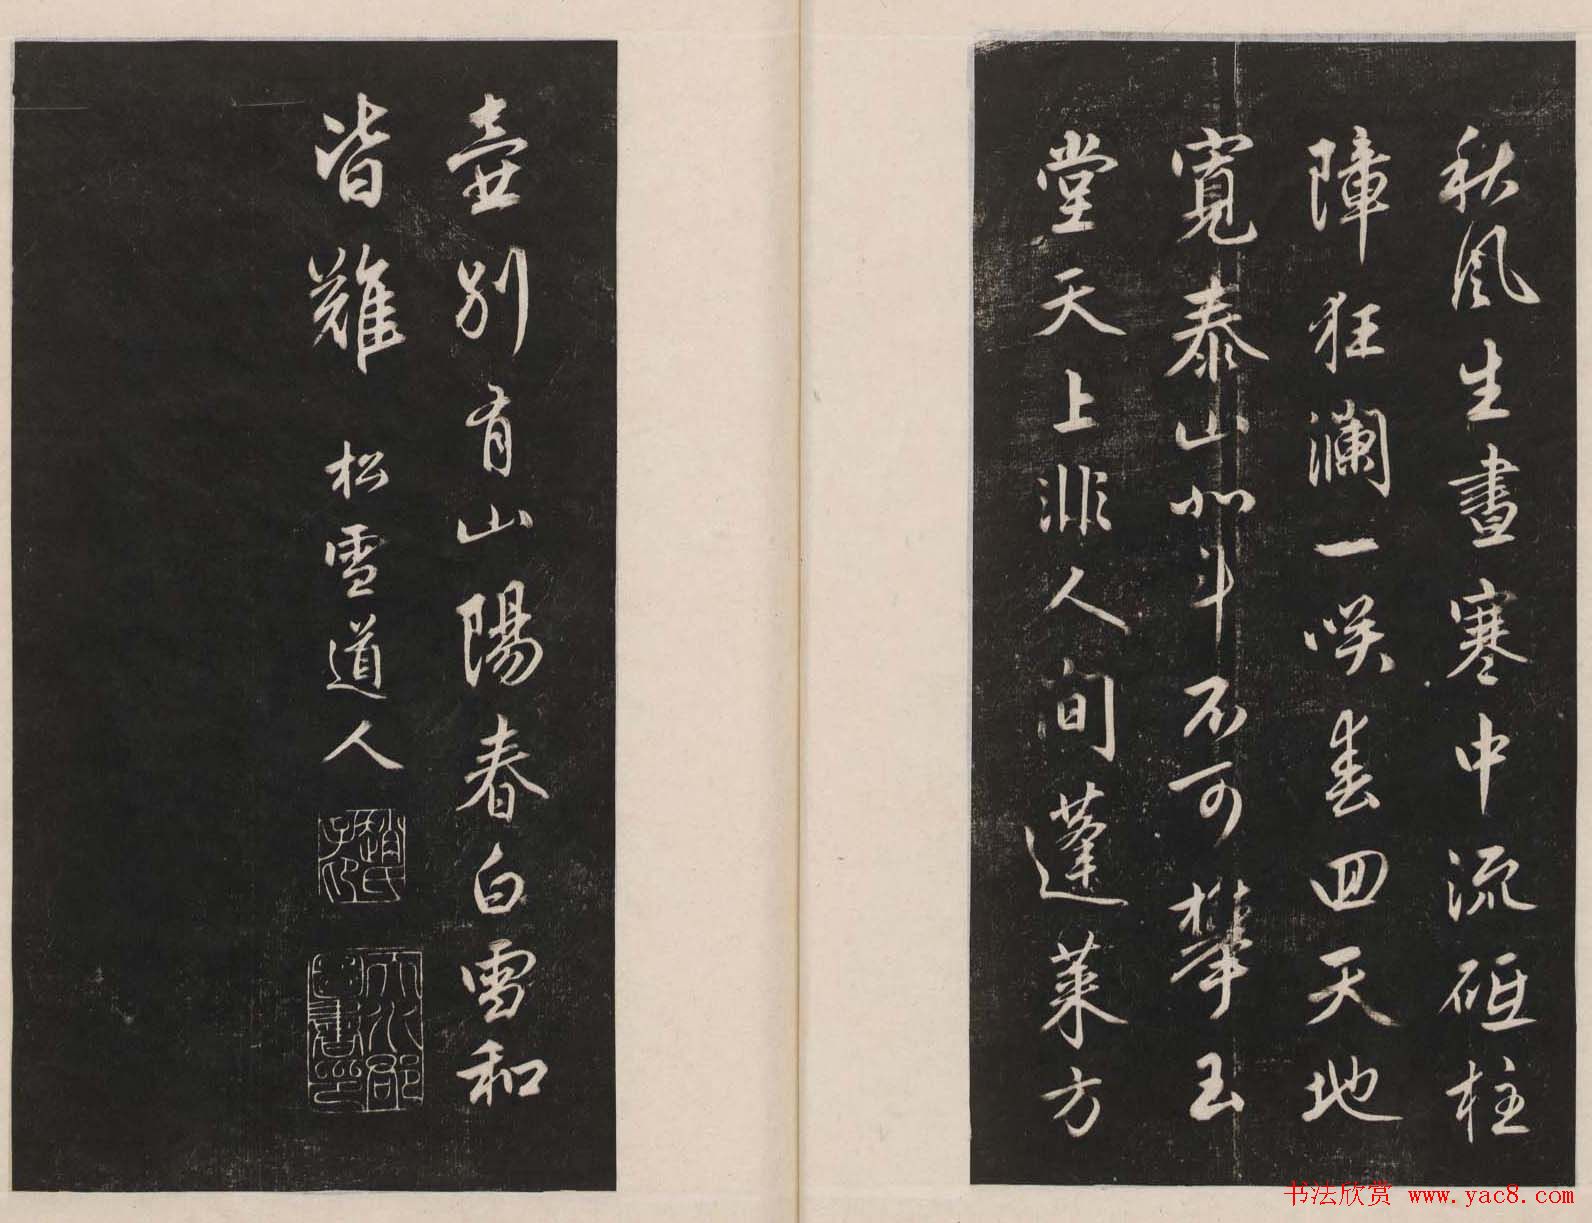 秋風生晝寒中流砥柱
障狂瀾一咲春回天地
寬泰山北斗不可攀玉
堂天上非人間蓬萊方
壺別有山陽春白雪和
皆難 松雪道人
趙氏子昂
天水郡圖書印
书法欣赏 www.yac8.com